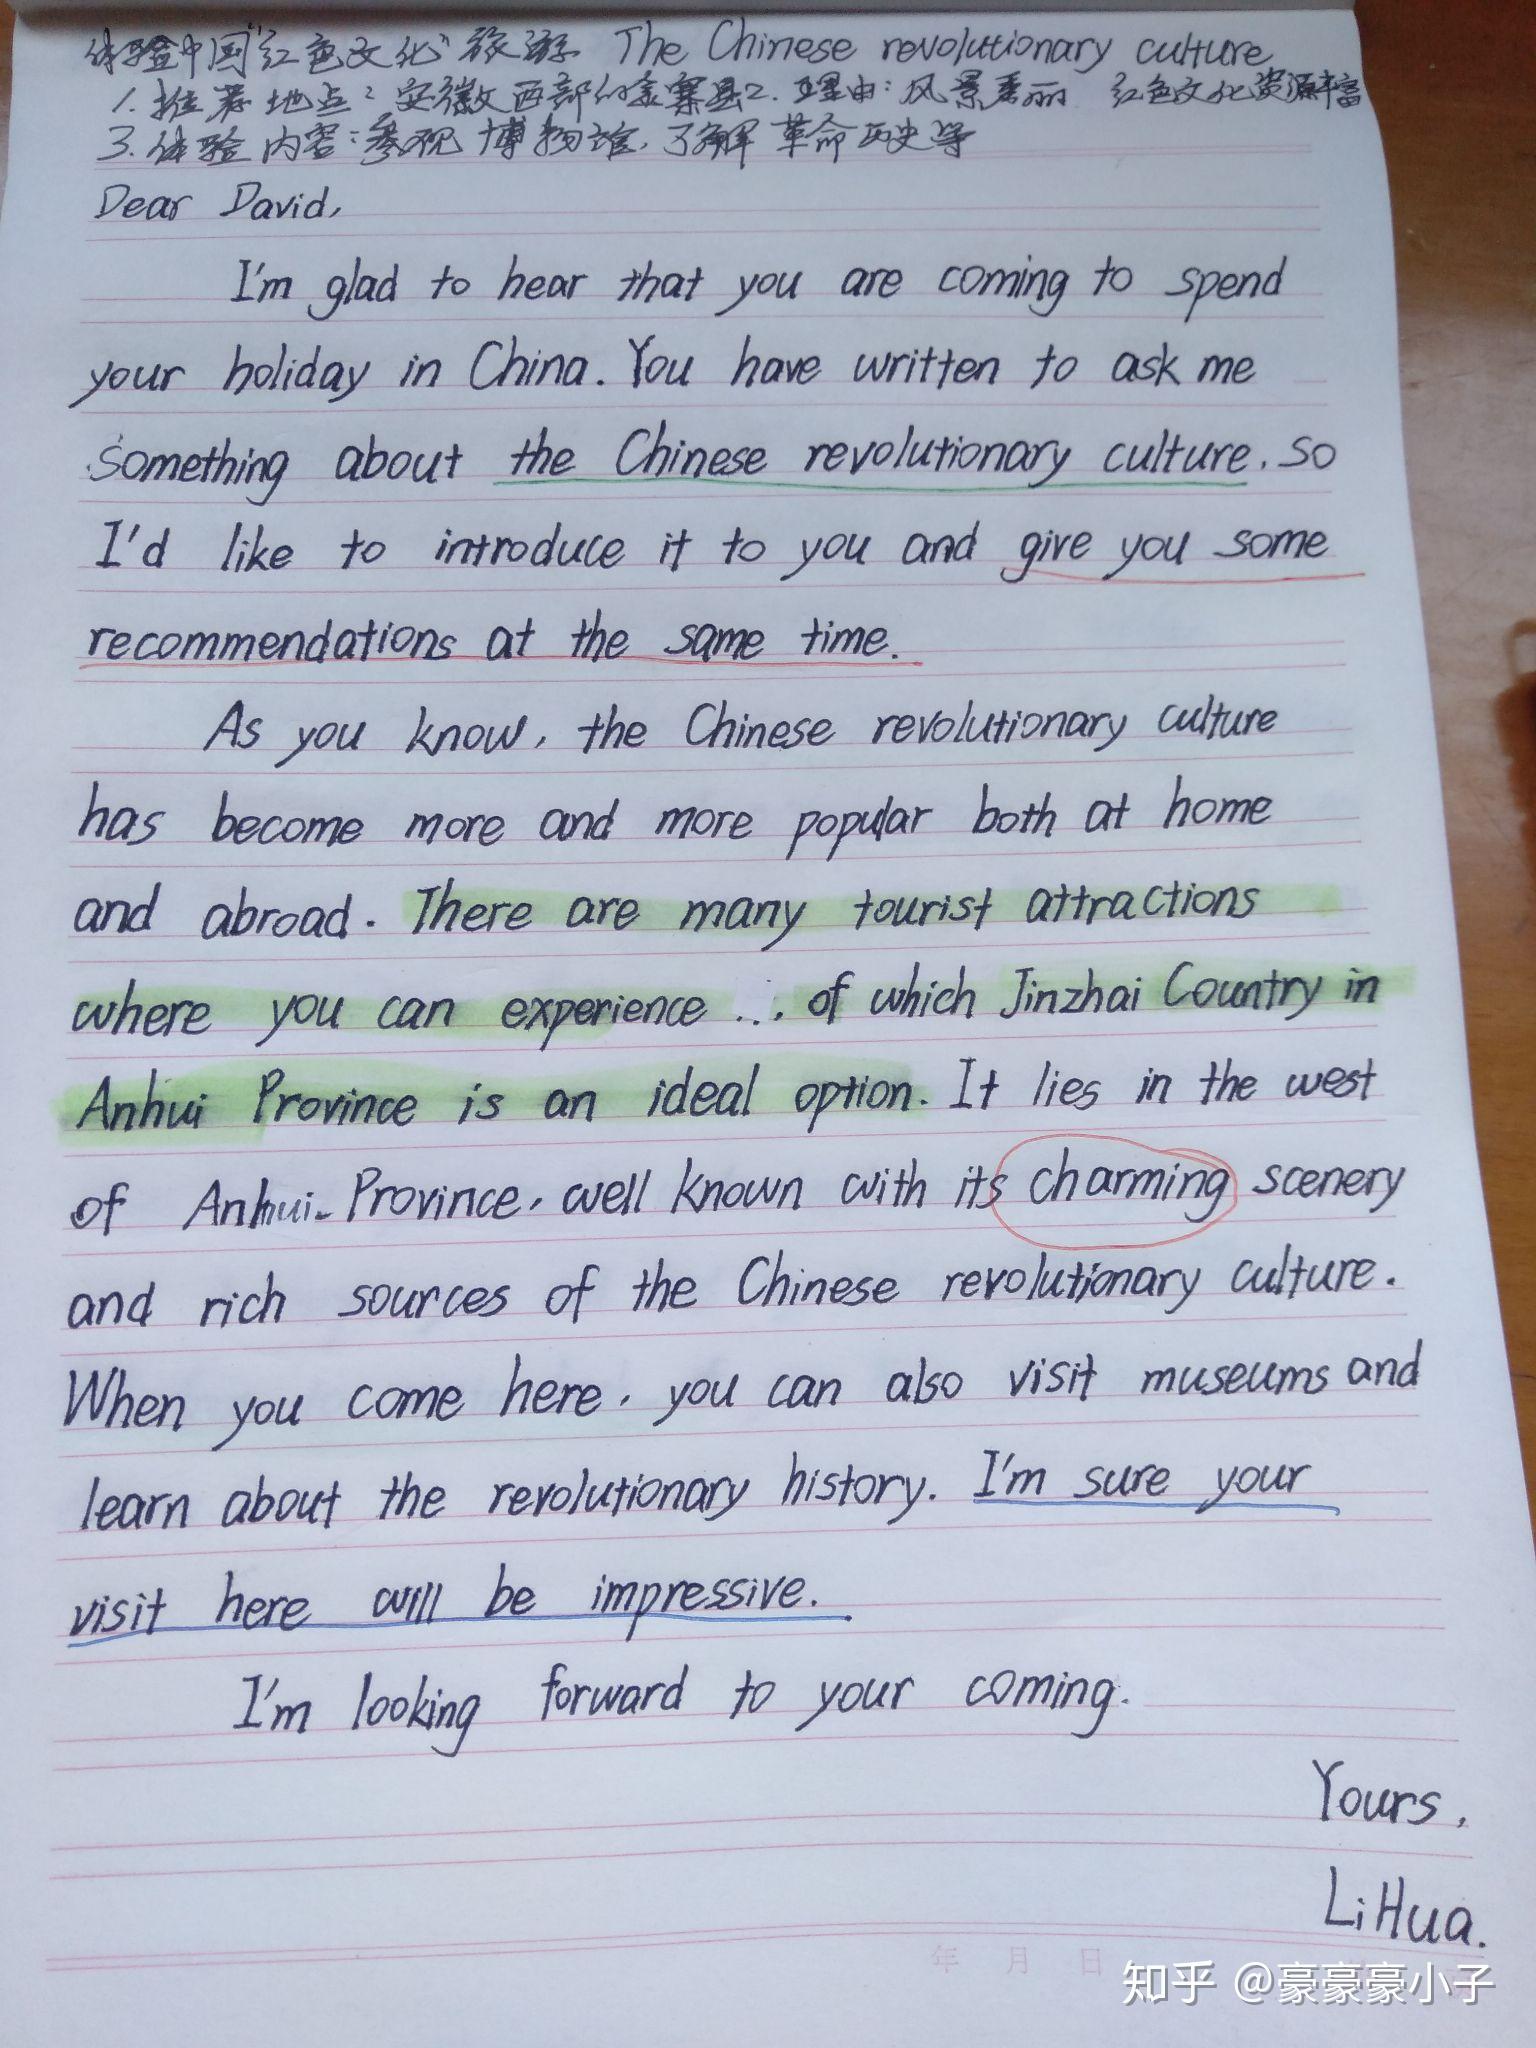 体验中国"红色文化"旅游 The Chinese revolutionary culture
1. 推荐地点：安徽西部的金寨县2. 理由：风景秀丽 红色文化资源丰富
3. 体验内容：参观博物馆，了解革命历史等
Dear David,
I'm glad to hear that you are coming to spend
your holiday in China. You have written to ask me
something about the Chinese revolutionary culture. so
I'd like to introduce it to you and give you some
recommendations at the same time.
As you know, the Chinese revolutionary culture
has become more and more popular both at home
and abroad. There are many tourist attractions
where you can experience ... of which Jinzhai Country in
Anhui Province is an ideal option. It lies in the west
of Anhui Province, well known with its charming scenery
and rich sources of the Chinese revolutionary culture.
When you come here, you can also visit museums and
learn about the revolutionary history. I'm sure your
visit here will be impressive.
I'm looking forward to your coming.
Yours,
Li Hua.
年 月 日
知乎 @豪豪豪小子